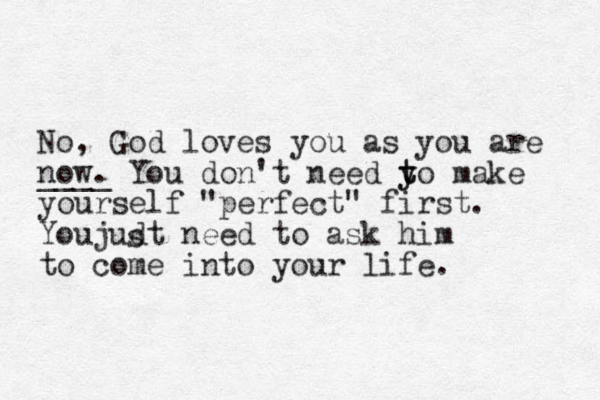 No, God loves you as you are
now. You don't need to make
yourself "perfect" first.
You just need to ask him
to come into your life.